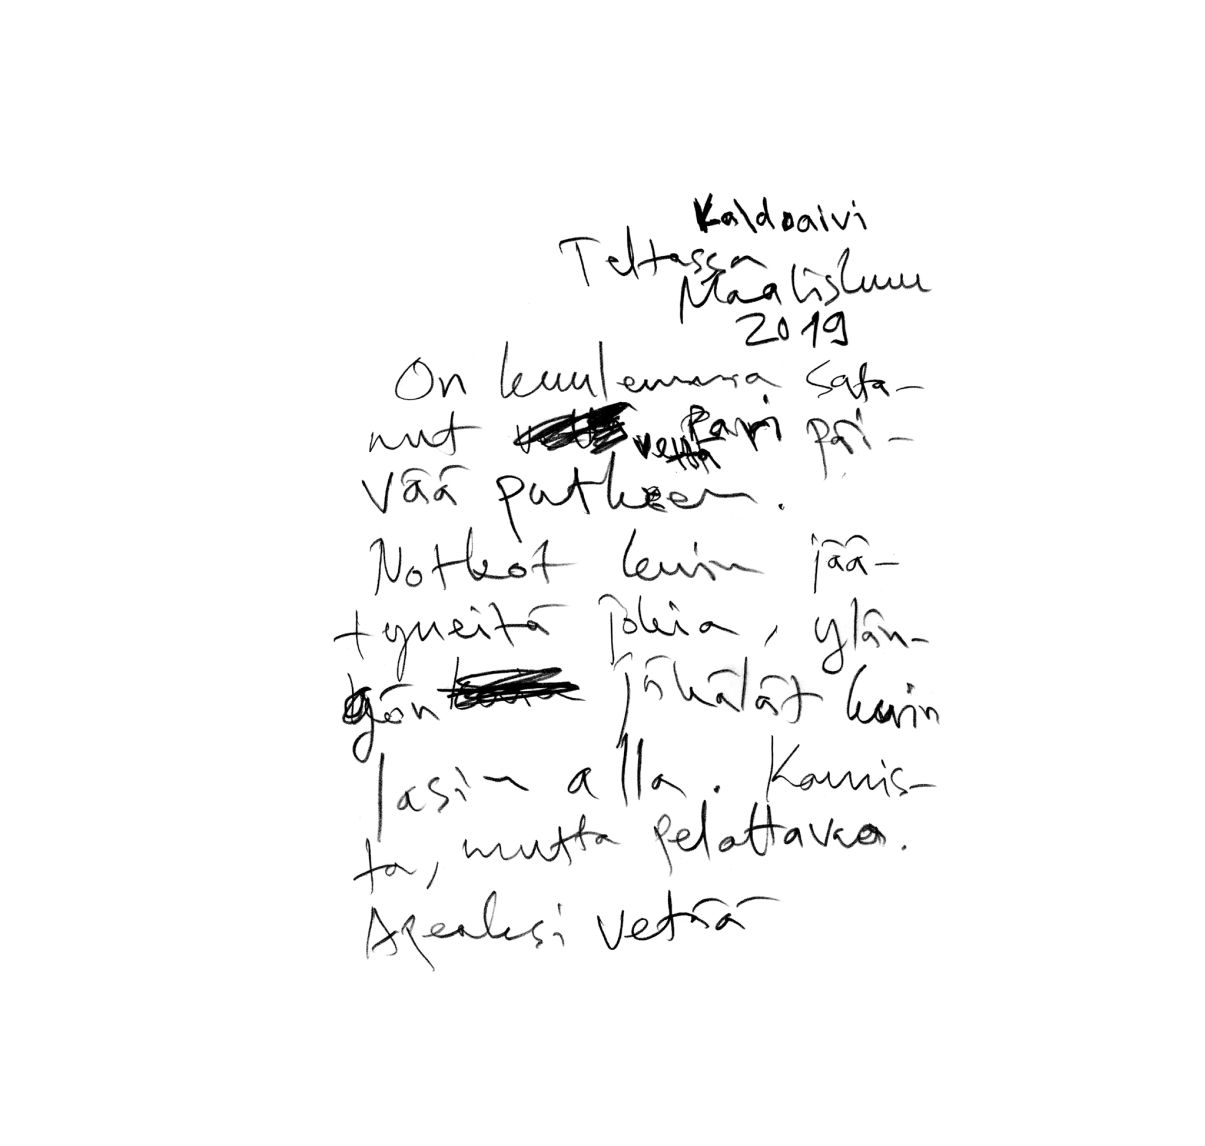 Kaldoaivi
Teltassa
Maaliskuu
2019
On kuulemma sata-
nut vettä pari päi-
vää putkeen.
Notkot kuin jää-
tyneitä jokia, ylän-
gön jäkälät kuin
lasin alla. Kaunis-
ta, mutta pelottavaa.
Apeaksi vetää